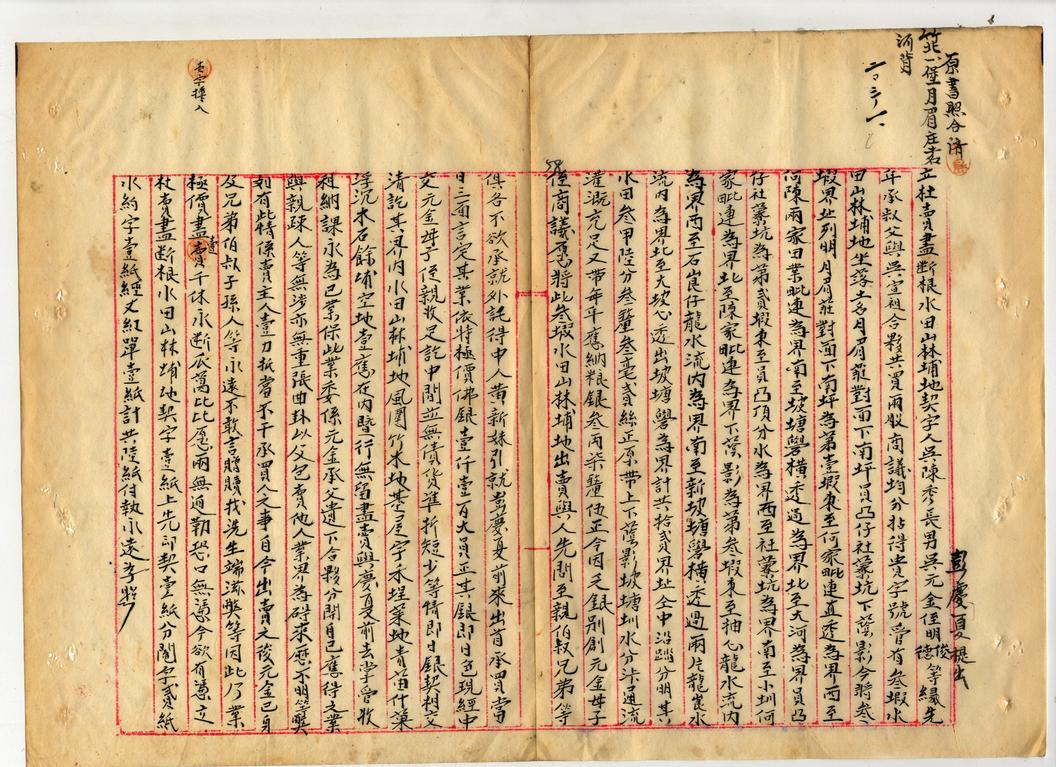 原書照合濟
竹北一堡月眉庄土名
河背
二〇三ノ一
彭慶夏提出
立杜賣盡斷根水田山林埔地契字人吳陳秀長男吳元金侄明俊德等緣先
年承叔父與吳定祖合夥共買兩股商議均分拈得貴字號管有叁塅水
田山林埔地坐落土名月眉庄對面下南坪員凸仔社藔坑下蔭影今將叁
塅界址列明月眉庄對面下南坪為第壹塅東至何家毗連直透為界西至
何陳兩家田業毗連為界南至坡塘礐橫透過為界北至大河為界員凸
仔社藔坑為第貳塅東至員凸頂分水為界西至社藔坑為界南至小圳何
家毗連為界北至陳家毗連為界下蔭影為第叁塅東至抽心龍水流內
為界西至石崀仔龍水流內為界南至新坡塘礐橫透過兩片龍崀水
流內為界北至大坡心透出坡塘礐為界計共拾貳界址仝中沿踏分明其
水田叁甲陸分叁釐叁毫貳絲正原帶上下蔭影坡塘圳水分柒通流
灌溉充足又帶年年應納粮銀叁両柒釐伍正今因乏銀別創元金母子
侄商議愿將此叁塅水田山林埔地出賣與人先問至親伯叔兄弟等
俱各不欲承就外託得中人黃新妹引就彭慶夏前來出首承買當
日三面言定其業依時極價佛銀壹仟壹百大員正其銀即日色現經中
交元金母子侄親收足訖中間並無債貨準折短少等情即日銀契相交
清訖其界內水田山林埔地風圍竹木地基屋宇禾埕菜地青苗什菓
浮沉木石餘埔空地壹應在內暨行無留盡賣與慶夏前去掌管收
租納課永為己業保此業委係元金承父遺下合夥分開自己應得之業
與親疎人等無涉亦無重張典卦以父包賣他人業界為碍來歷不明等獘
如有此情係賣主人壹力抵當不干承買人之事自今出賣之後元金己身
及兄弟伯叔子孫人等永遠不敢言贈贖找洗生端滋獘等因此乃業
極價盡壹賣千休永斷瓜葛比比愿兩無迫勒恐口無憑今欲有憑立
杜賣盡斷根水田山林埔地契字壹紙上先印契壹紙分鬮字貳紙
水約字壹紙經丈紅單壹紙計共陸紙付執永遠存照
壹字攙入